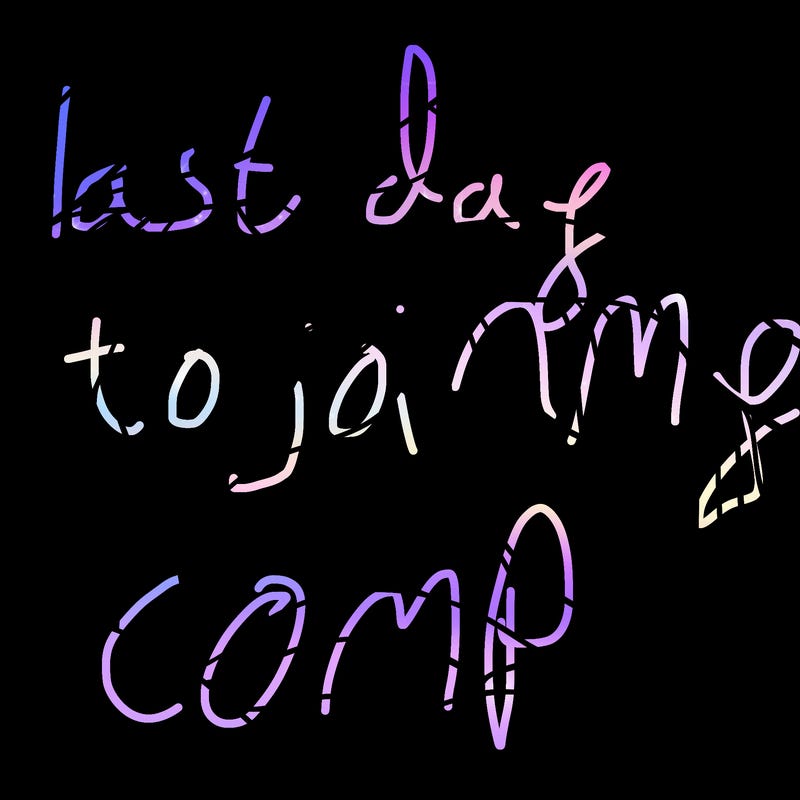 last day
to join my
comp